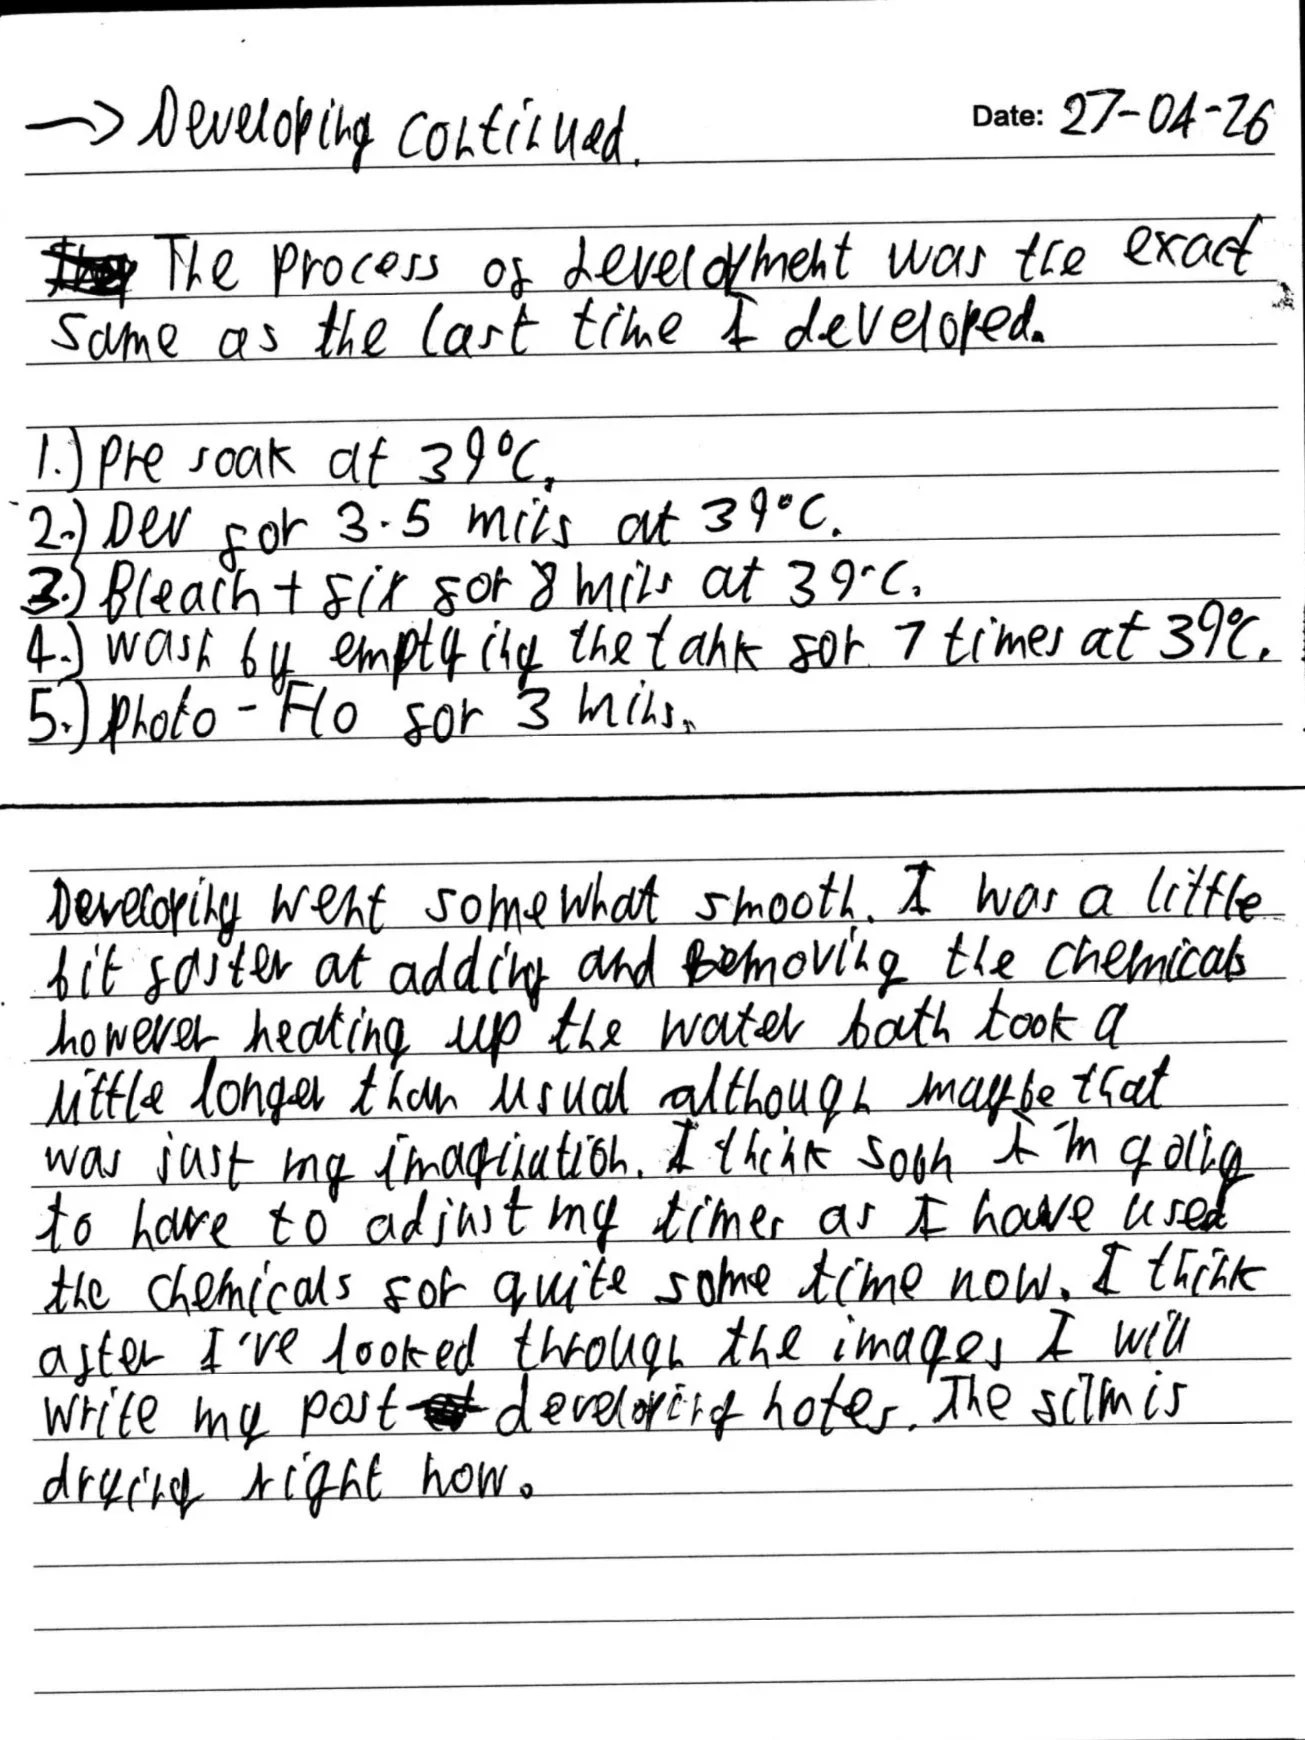 → Developing continued.
Date: 27-04-26
The process of development was the exact
same as the last time I developed.
1.) Pre soak at 39°C.
2.) Dev for 3.5 mins at 39°C.
3.) Bleach + fix for 8 mins at 39°C.
4.) Wash by emptying the tank for 7 times at 39°C.
5.) Photo-Flo for 3 mins.
Developing went somewhat smooth. I was a little
bit faster at adding and removing the chemicals
however heating up the water bath took a
little longer than usual although maybe that
was just my imagination. I think soon I'm going
to have to adjust my times as I have used
the chemicals for quite some time now. I think
after I've looked through the images I will
write my post developing notes. The film is
drying right now.